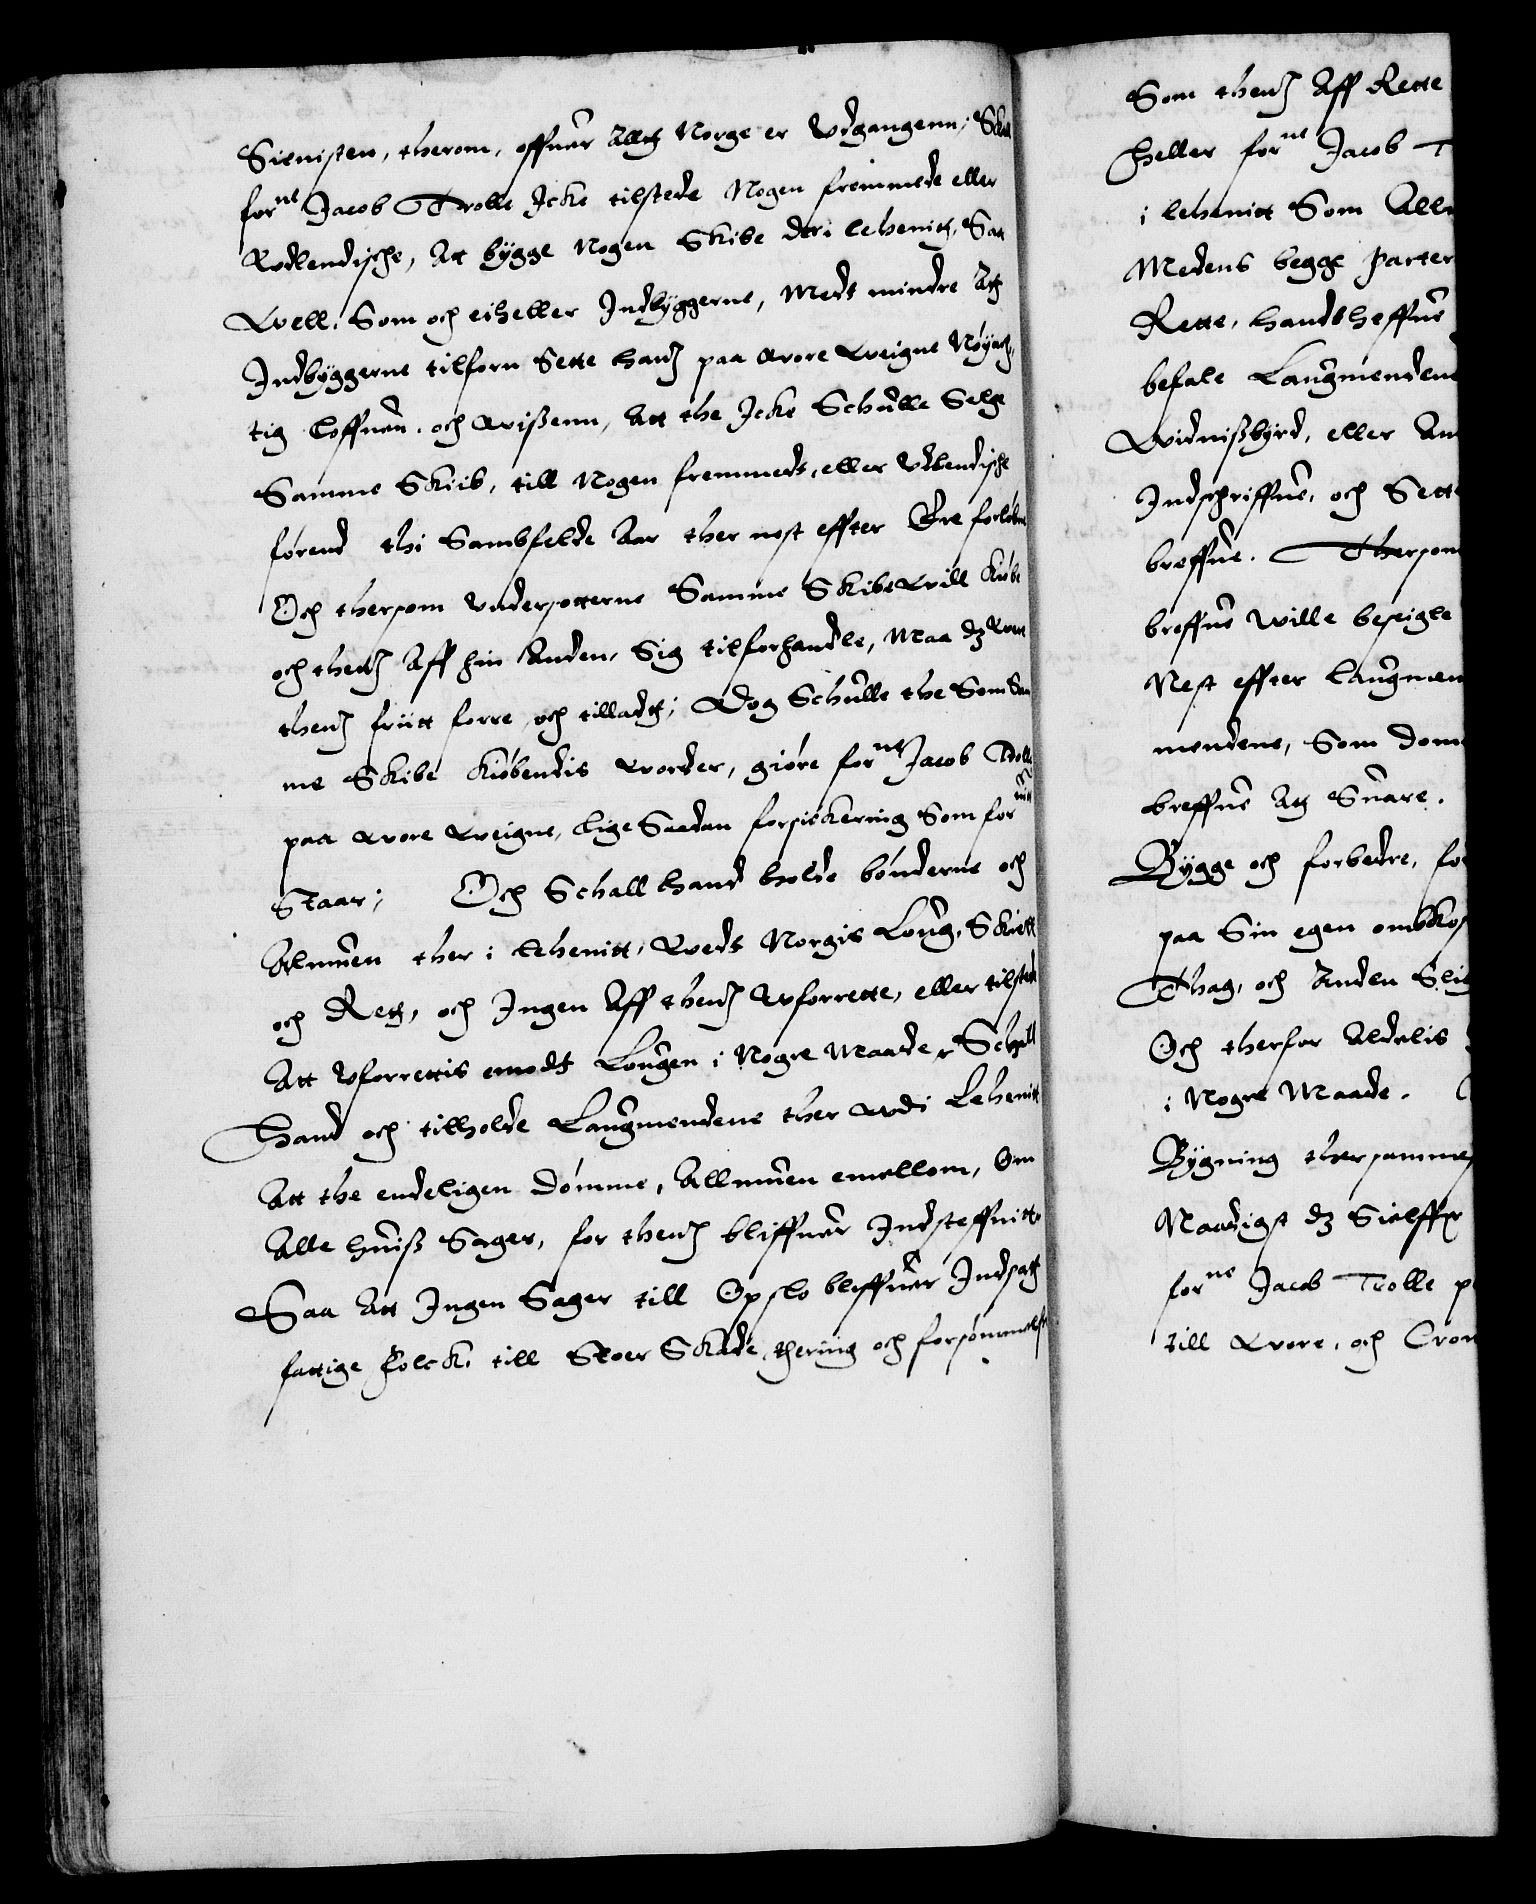 Sienisten, therom, offuer Altt Norge er Vdgangenn; Schall
forne Jacob Trolle Icke tilstede Nogen fremmede eller
Wdlendische, Att bygge Nogen Skibe der i lehenitt, Saa
Well, Som och eiheller Indbyggerne, Medt mindre Att
Indbyggerne tilforn Sette hannem paa Wore Weigne Nöyach,
tig loffuen, och Wissenn, Att the Icke Schulle Selge
Samme Skiib, till Nogen fremmede, eller Vdlendische
förend thi Sambfelde Aar ther nest effter Ere forlöben
Och thersom Vndersotterne Samme Skibe Will Kiöbe
och thennem Aff hin Anden, Sig tilforhandle, Maa dz Were
thennem friitt forre, och tilladtt; Dog Schulle the Som Sam
me Skibe Kiöbendis Worder, giöre forne Jacob Trolle
paa Wore Weigne, lige Saadan forsickering Som for nitt
Staar; Och Schall hand holde bönderne och
Almuen ther i lehenitt, Weds Norgis Loug, Skiell
och Rett, och Ingen Aff thennem Wforrette, eller tilstede
Att Vforrettis emodt Lougen i Nogre Maade, Schall
Hand och tilholde Laugmendene ther Wdi Lehenitt
Att the endeligen dömme, Allmuen emellom, Om
Alle huiss Sager, for thennem bliffuer Indsteffnitt
Saa Att Ingen Sager till Opslo bliffuer Indsatt
fattige folck, till Stoer Skade, thering och forsömmelse
Som thennem Aff Rette
Heller forne Jacob T
i lehenitt Som Allm
Medens begge Parter
Rette, handtheffue
befale Laugmendene
Widnissbyrd, eller An
Indschriffue, och Sette
breffue. Thersom
breffue Wille beseigle
Nest effter Laugmen
mendene, Som dom
breffue Att Suare.
Bygge och forbedre, for
paa Sin egen ombkos
Thag, och Anden Slig
Och therfor Aldelis
i Nogre Maade.
Bygning thersammes
Naadigst dz Sielffue
forne Jacob Trolle p
till Wore, och Cron